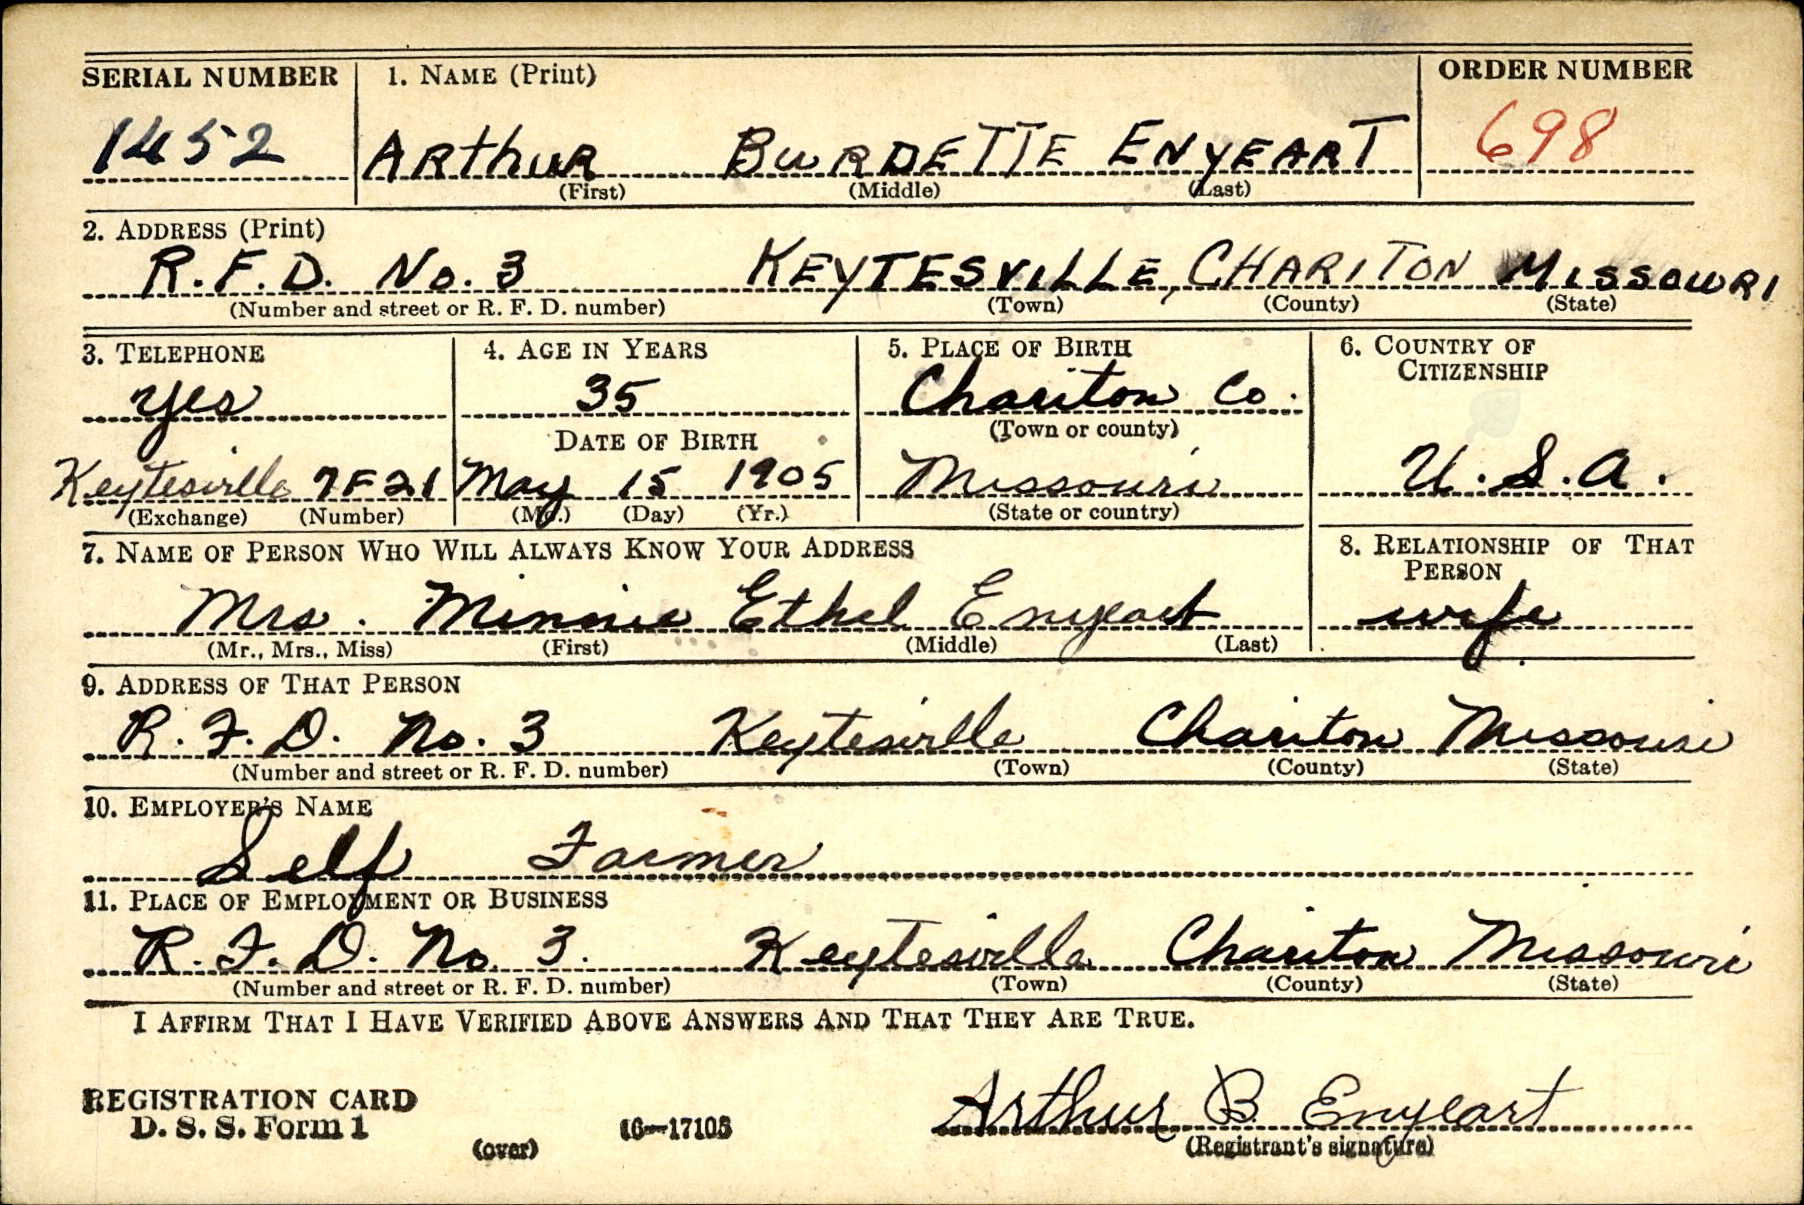 SERIAL NUMBER 1. NAME (Print) ORDER NUMBER
1452 ARthUR BURDETTE ENYEART 698
(First) (Middle) (Last)
2. ADDRESS (Print)
R.F.D. No. 3 KEYTESVILLE, CHARITON MISSOURI
(Number and street or R. F. D. number) (Town) (County) (State)
3. TELEPHONE 4. AGE IN YEARS 5. PLACE OF BIRTH 6. COUNTRY OF CITIZENSHIP
yes 35 Chariton Co.
DATE OF BIRTH (Town or county)
Keytesville 7F21 May 15 1905 Missouri U.S.A.
(Exchange) (Number) (Mo.) (Day) (Yr.) (State or country)
7. NAME OF PERSON WHO WILL ALWAYS KNOW YOUR ADDRESS 8. RELATIONSHIP OF THAT PERSON
Mrs. Minnie Ethel Enyeart wife
(Mr., Mrs., Miss) (First) (Middle) (Last)
9. ADDRESS OF THAT PERSON
R.F.D. No. 3 Keytesville Chariton Missouri
(Number and street or R. F. D. number) (Town) (County) (State)
10. EMPLOYER'S NAME
Self Farmer
11. PLACE OF EMPLOYMENT OR BUSINESS
R.F.D. No. 3. Keytesville Chariton Missouri
(Number and street or R. F. D. number) (Town) (County) (State)
I AFFIRM THAT I HAVE VERIFIED ABOVE ANSWERS AND THAT THEY ARE TRUE.
REGISTRATION CARD
D. S. S. Form 1 (over) 16—17105 Arthur B Enyeart
(Registrant's signature)